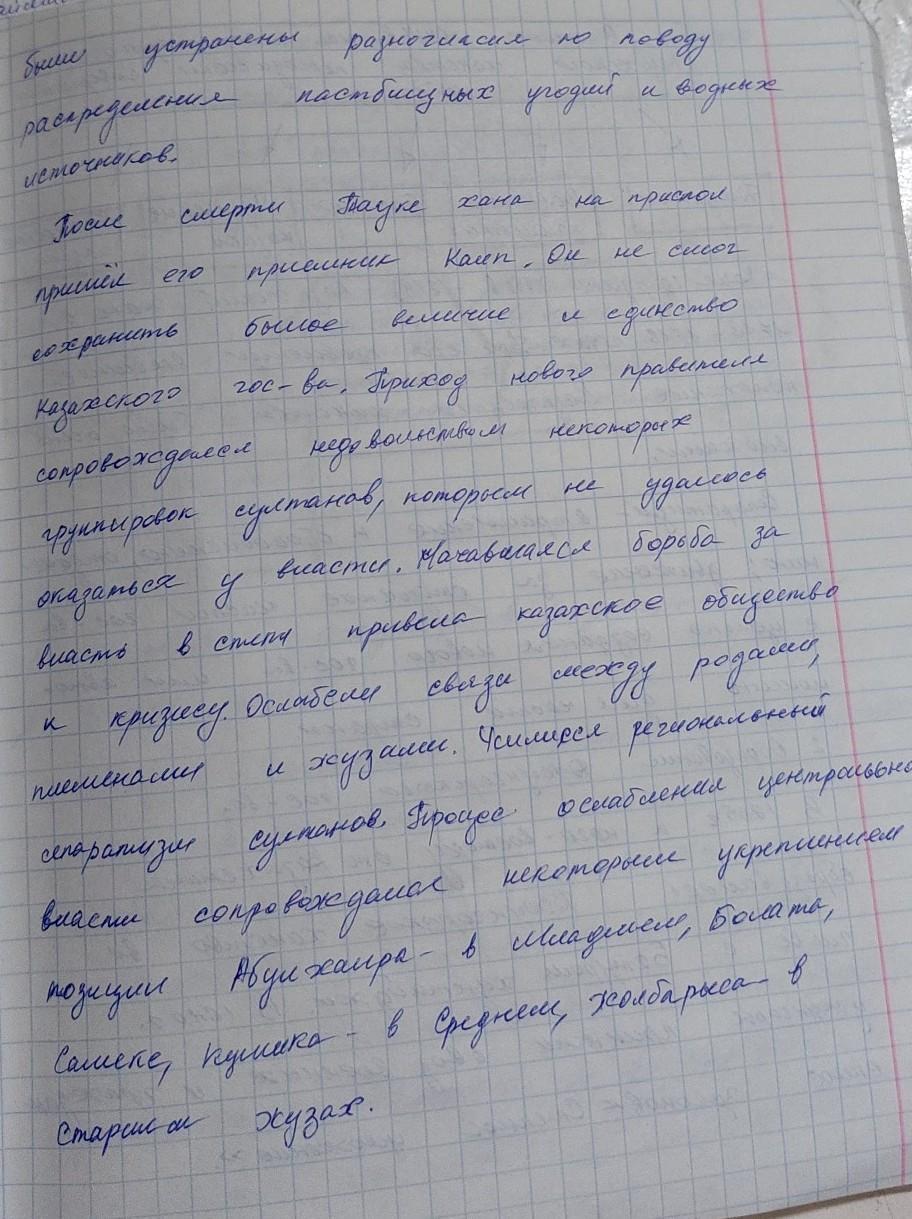 были устранены разногласия по поводу
распределения пастбищных угодий и водных
источников.
После смерти Тауке хана на пристол
пришёл его приемник Каип. Он не смог
сохранить былое величие и единство
Казахского гос-ва. Приход нового правителя
сопровождался недовольством некоторых
группировок султанов, которым не удалось
оказаться у власти. Начавшаяся борьба за
власть в степи привела казахское общество
к кризису. Ослабели связи между родами,
племенами и жузами. Усилился региональный
сепаратизм султанов. Процес ослабления центрально
власти сопровождался некоторым укреплением
позиции Абулхаира - в Младшем, Болата,
Самеке, Кушика - в Среднем, Жолбарыса - в
Старшем жузах.